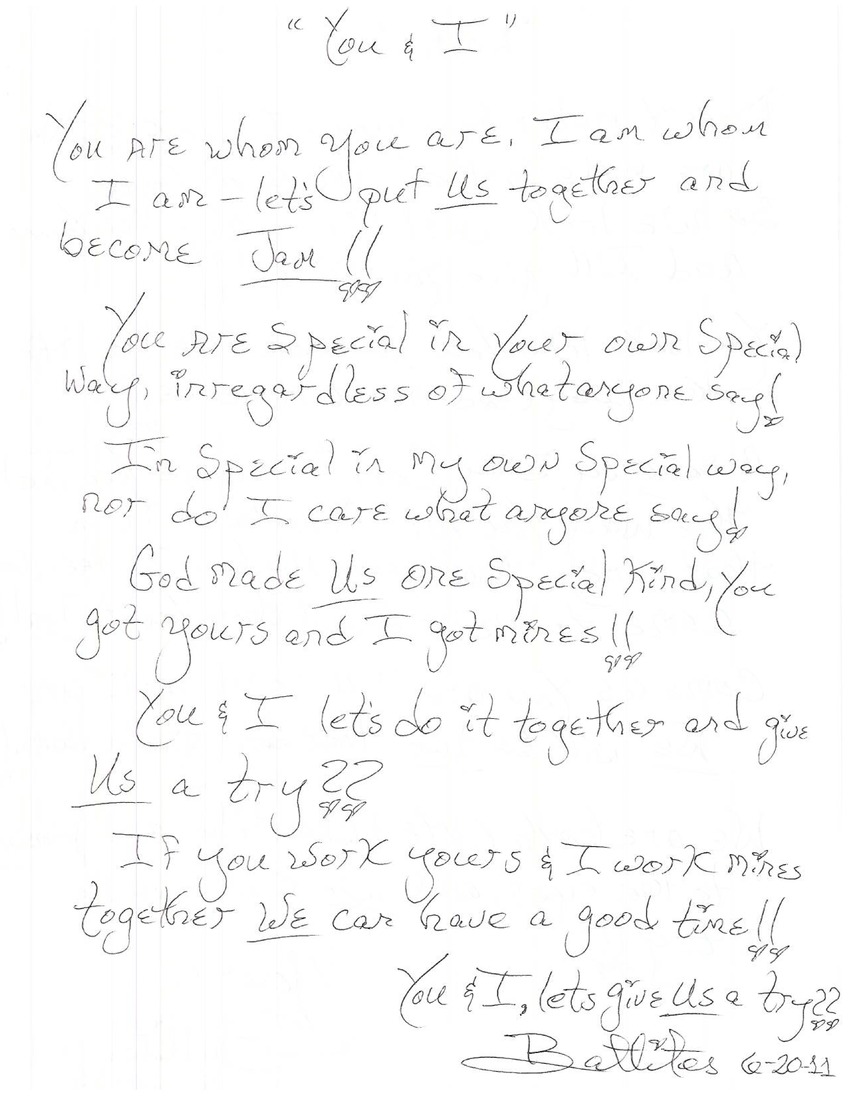 "You & I"
You are whom you are. I am whom
I am – let's put Us together and
become Jam!!
You are Special in your own Special
way, irregardless of what anyone say!
Im Special in my own Special way,
nor do I care what anyone say!
God made Us one Special Kind, you
got yours and I got mines!!
You & I let's do it together and give
Us a try??
If you work yours & I work mines
together We can have a good time!!
You & I, lets give Us a try??
6-20-11